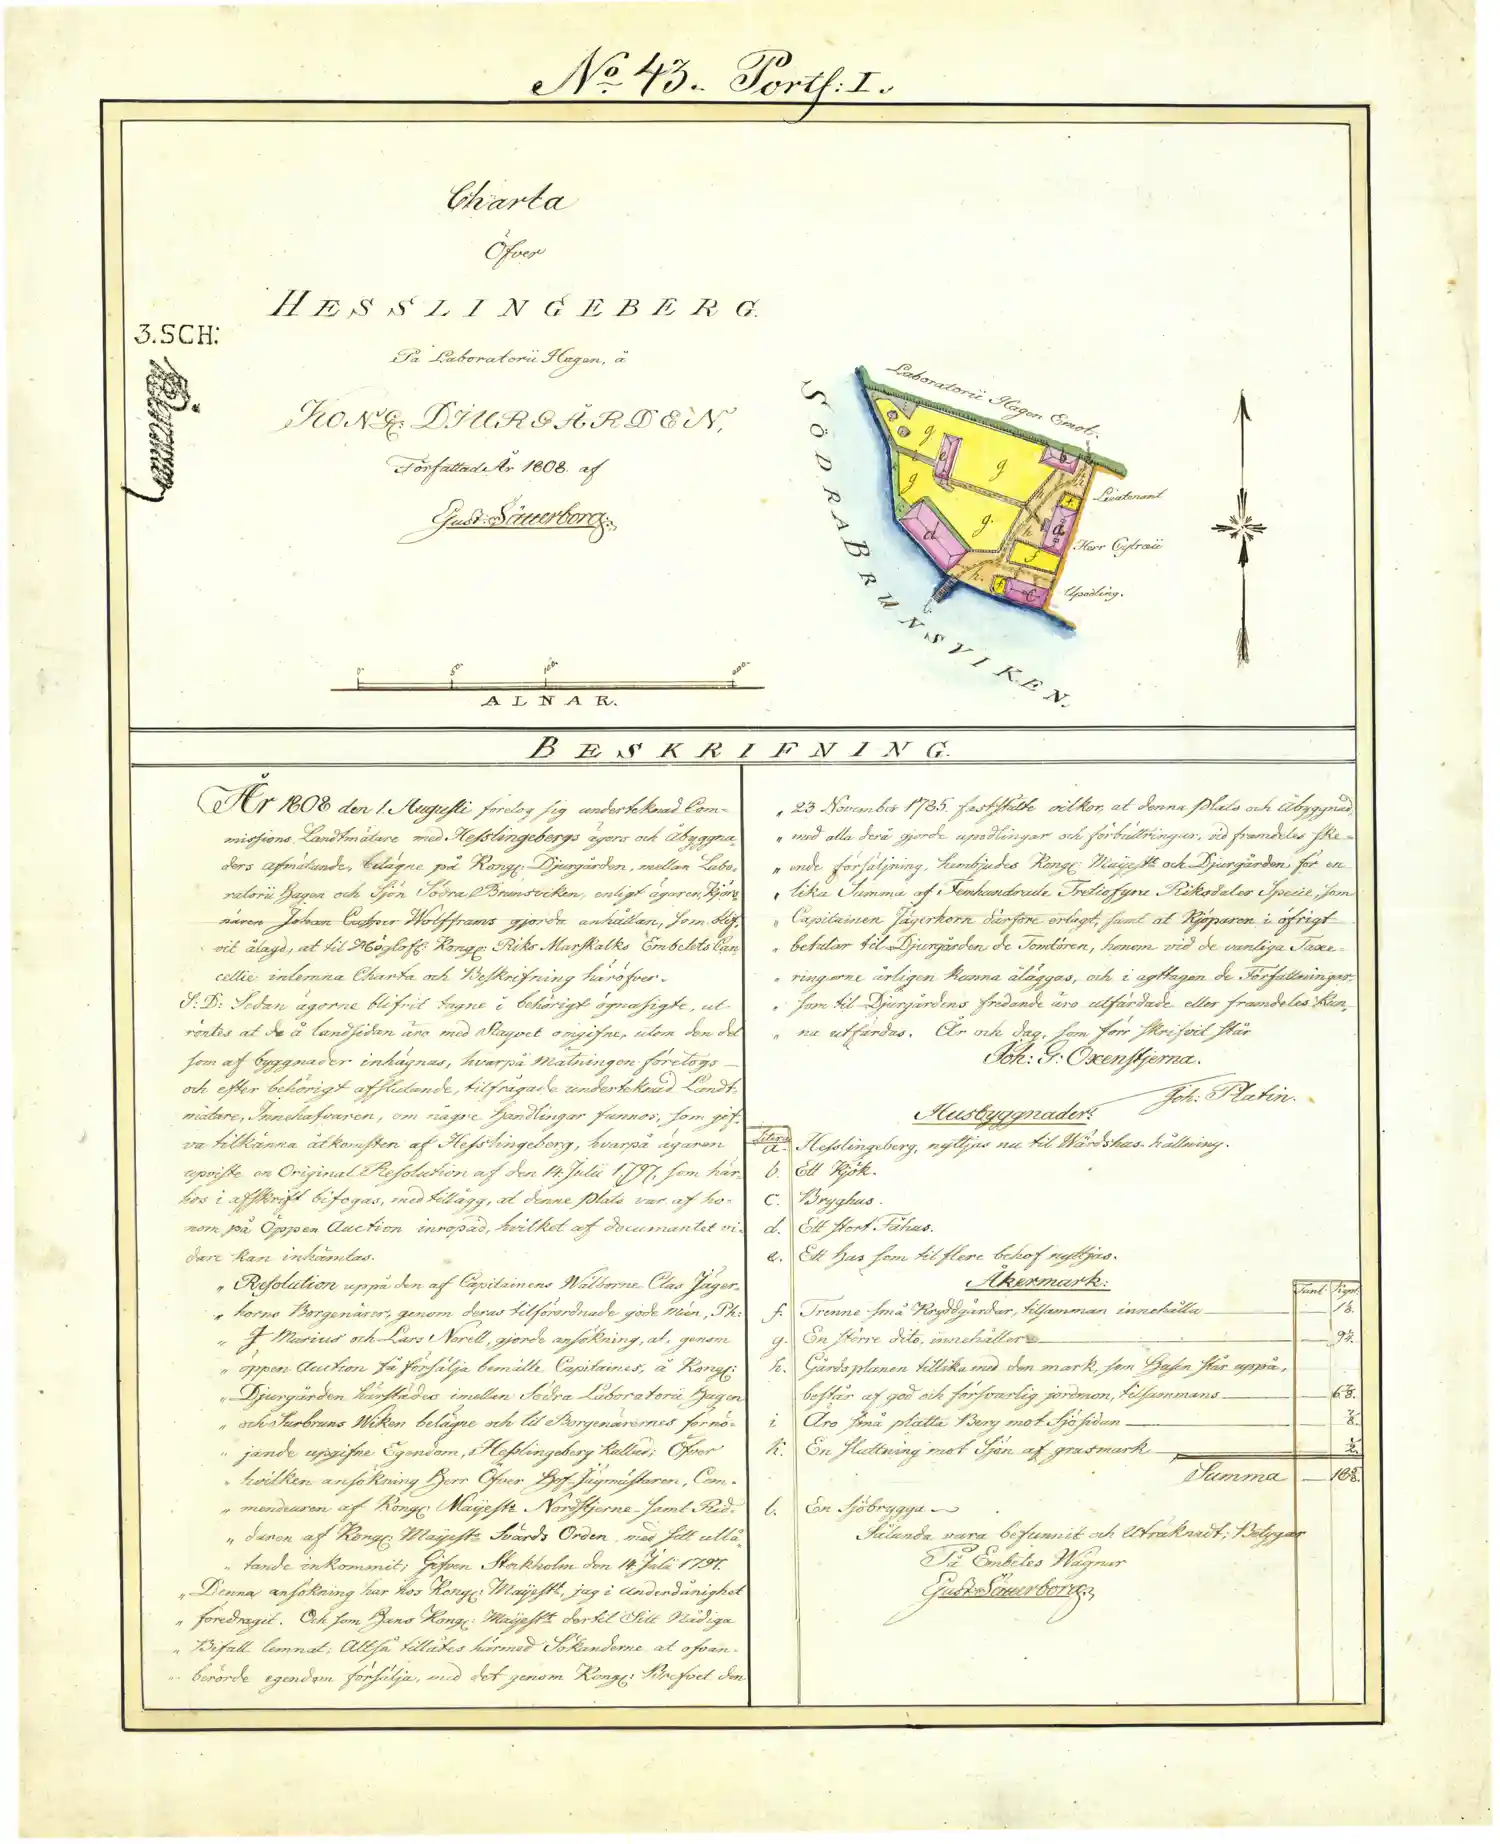 No 43. Portf: I.
Charta
Öfver
HESSLINGEBERG.
På Laboratorii Hagen, å
KONGL: DJURGÅRDEN,
Författad År 1808 af
Gust: Säuerborg.
3.SCH:
Laboratorii Hagen Emot.
Lieutenant
Herr Cytræi
Upodling.
SÖDRA BRUNSVIKEN.
g
g
g
g.
e
b
d
a
f
f
f
h
h
h
h.
c
0
50
100
200
ALNAR.
BESKRIFNING.
År 1808 den 1. Augusti företog sig undertecknad Com-
missions Landtmätare med Hesslingebergs ägors och åbyggna-
ders afmätande, belägne på Kongl: Djurgården, mellan Labo-
ratorii Hagen och Sjön Södra Brunsviken, enligt ägaren, Kjör-
nären Johan Casper Wolfframs gjorda anhållan, som blif-
vit ålagd, at til Höglofl: Kongl: Riks Marskalks Embetets Can-
cellie inlemna Charta och Beskrifning häröfver.
S: D: Sedan ägorne blifvit tagne i behörigt ögnasigte, ut-
röntes at de å landsidan äro med Staquet omgifne, utom den del
som af byggnader inhägnas, hvarpå Mätningen företogs
och efter behörigt afslutande, tilfrågade undertecknad Landt-
mätare, Innehafvaren, om någre Handlingar funnos, som gif-
va tilkänna åtkomsten af Hesslingeberg, hvarpå ägaren
upviste en Original Resolution af den 14 Julii 1797, som här-
hos i afskrift bifogas, med tillägg, at denne plats var af ho-
nom på Öppen Auction inropad, hvilket af documentet vi-
dare kan inhämtas.
„ Resolution uppå den af Capitainens Wälborne Clas Jäger-
„ horns Borgenärer, genom deras tilförordnade gode Män, Ph:
„ J Marius och Lars Norell, gjorde ansökning, at, genom
„ öppen Auction få försälja bemälte Capitaines, å Kongl:
„ Djurgården härstädes imellan Södra Laboratorii Hagen
„ och Surbruns Wiken belägne och til Borgenärernes förnö-
„ jande upgifne Egendom, Hesslingeberg kallad; Öfver
„ hvilken ansökning Herr Öfver Hof Jägmästaren, Com-
„ mendeuren af Kongl: Maijestts Nordstjerne- samt Rid-
„ daren af Kongl: Maijestts Svärds Orden, med sitt utlå-
„ tande inkommit; Gifven Stockholm den 14 Julii 1797.
„ Denna ansökning har hos Kongl: Maijestt, jag i underdånighet
„ föredragit. Och som Hans Kongl: Maijestt dertil Sitt Nådiga
„ Bifall lemnat; Altså tillåtes härmed Sökanderne at ofvan-
„ berörde egendom försälja, med det genom Kongl: Brefvet den
„ 23 November 1785. fastställte vilkor, at denna plats och åbyggnad,
„ med alla derå gjorde upodlingar och förbättringar, vid framdeles ske-
„ ende försäljning, hembjudes Kongl: Maijestt och Djurgården, för en
„ lika Summa af Femhundrade Tretiofyra Riksdaler Specie, som
„ Capitainen Jägerhorn därföre erlagt, samt at Kjöparen i öfrigt
„ betalar til Djurgården de Tomtören, honom vid de vanliga Taxe-
„ ringarne årligen kunna åläggas, och i agttagen de Författningar,
„ som til Djurgårdens fredande äro utfärdade eller framdeles kun-
„ na utfärdas. År och dag, som förr skrifvit står
Joh: G: Oxenstjerna.
Joh: Platin.
Husbyggnader:
Litera
a. Hesslingeberg, nyttjas nu til Wärdshus-hållning.
b. Ett Kjök.
c. Bryghus.
d. Ett stort Fähus.
e. Ett hus som til flere behof nyttjas.
Åkermark:
Tunl. Kapl.
f. Trenne små Kryddgårdar, tilsamman innehålla — 13.
g. En större dito, innehåller — 97.
h. Gårdsplanen tillika med den mark, som Husen står uppå,
består af god och försvarlig jordmon, tilsammans — 6 7/8.
i. Äro små platta Berg mot Sjösidan — 7/8.
k. En sluttning mot Sjön af gräsmark — 1/2.
Summa —
l. En Sjöbrygga
Sålunda vara befunnit och Uträknadt; Betygar
På Embetes Wägnar
Gust: Säuerborg.